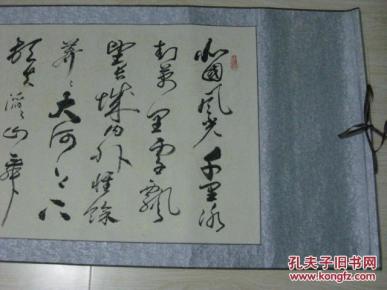 北國風光千里冰
封萬里雪飄
望長城內外惟餘
莽々大河上下
頓失滔々山舞
孔夫子旧书网